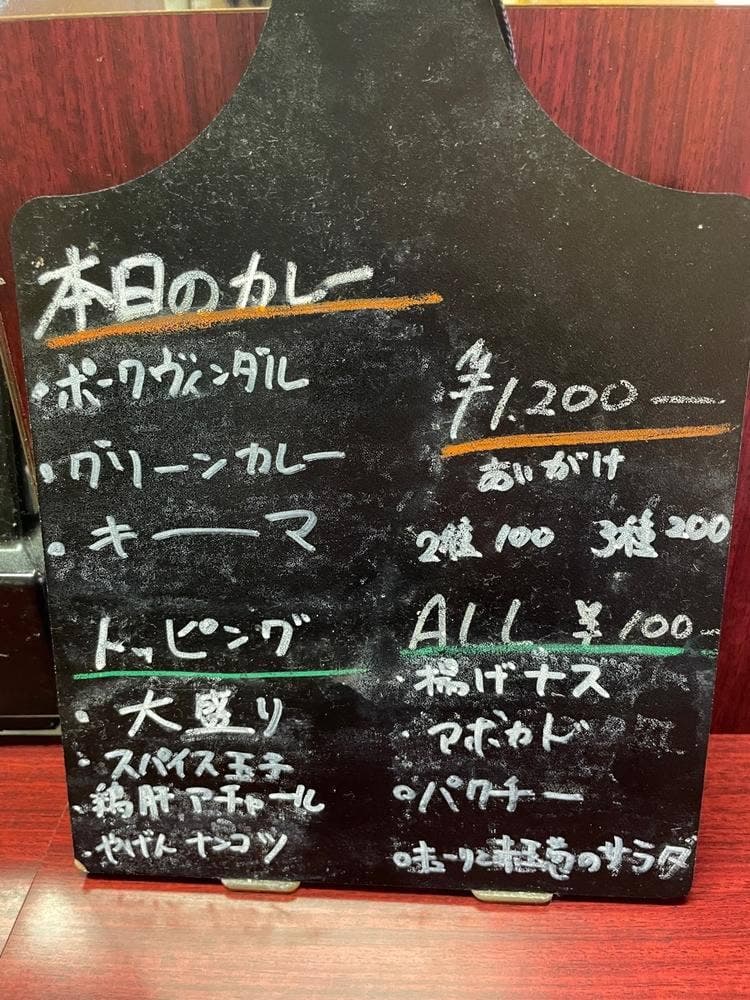 本日のカレー
・ポークヴィンダル
・グリーンカレー
・キーマ
¥1,200ー
あいがけ
2種 100 3種 200
トッピング
・大盛り
・スパイス玉子
・鶏肝アチャール
・やげんナンコツ
ALL ¥100-
・揚げナス
・アボカド
・パクチー
のサラダ